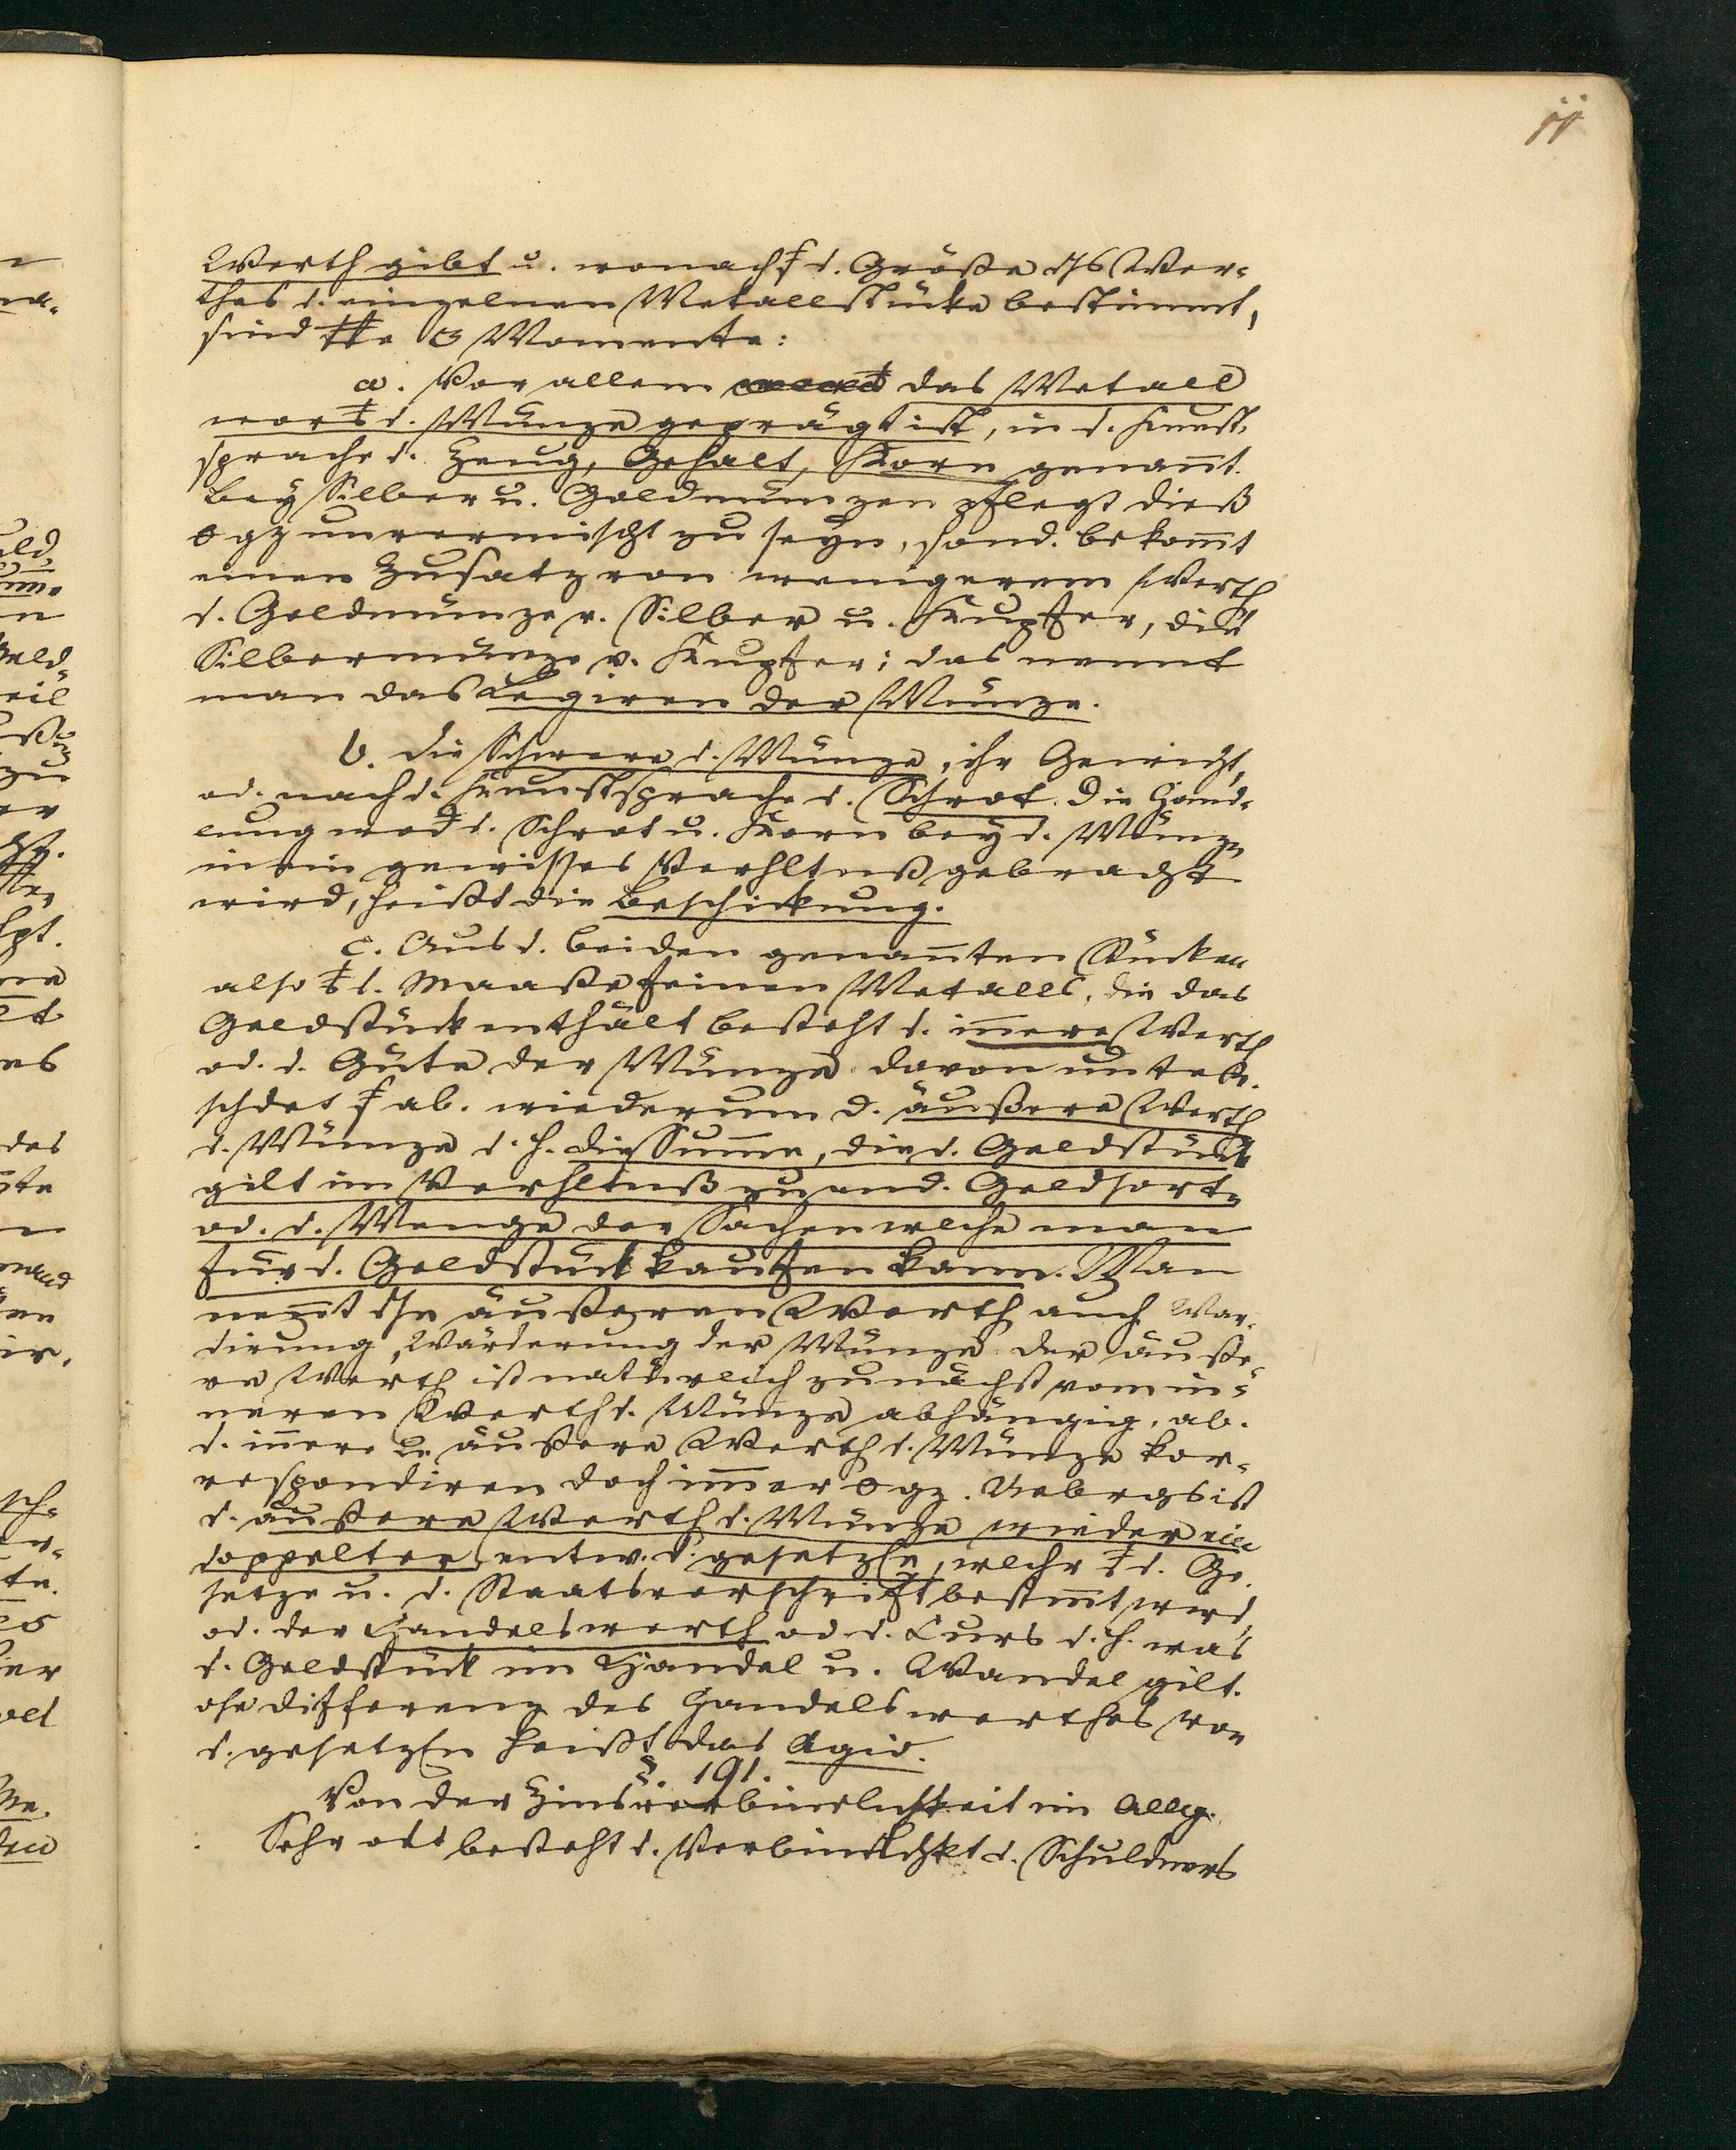 11
Werth gibt u. wonach d. Größe des Wer-
thes d. einzelnen Metallstücke bestimmt,
sind 3 Momente:
a. Vor allem das Metall
d. Münze geprägt ist, in d. Kunst-
sprache d. Zeug, Gehalt, Korn genañt.
bey Silber u. Goldmünzen pflegt dieß
0 gz unvermischt zu seyn, sond. bekom̄t
einen Zusatz von wenigerem Werth
d. Goldmünze v. Silber u. Kupfer, die
Silbermünze v. Kupfer; das nennt
man das Legiren der Münze.
b. die Schwere d. Münze, ihr Gewicht,
od. nach d. Kunstsprache d. Schrot. Die Hand-
lung d. Schrot u. Korn bey d. Münze
in ein gewisses Verhltniß gebracht
wird, heißt die Beschickung.
c. Aus d. beiden genañten Stücken
also d. Maaße feinen Metalls, die das
Geldstück enthält besteht d. iñere Werth
od. d. Güte der Münze. davon unter-
schdet ab. wiederum d. äußere Werth
d. Münze d. h. die Sum̄e, die d. Geldstück
gilt im Verhltniß zu and. Geldsorten
od. d. Menge der Sachen welche man
für d. Geldstück kaufen kann. Man
neñt äußeren Werth auch War-
dirung, Würderung der Münze. Der äuße-
re Werth ist natürlich zunächst vom in-
neren Werth d. Münze abhängig, ab.
d. iñere u. äußere Werth d. Münze kor-
respondiren doch im̄er 0 gz. Uebrgs ist
d. äußere Werth d. Münze wieder ein
doppelter, entw. d. gesetzle, welche d. Ge-
setze u. d. Staatsvorschrift bestim̄t wird,
od. der Handelswerth od. d. Curs d. h. was
d. Geldstück im Handel u. Wandel gilt.
Differenz des Handelswerthes von
d. gesetzln heißt das Agio.
§. 191.
Von der Zinsverbindlichkeit im Allg.
Sehr oft besteht d. Verbindlchkt d. Schuldners